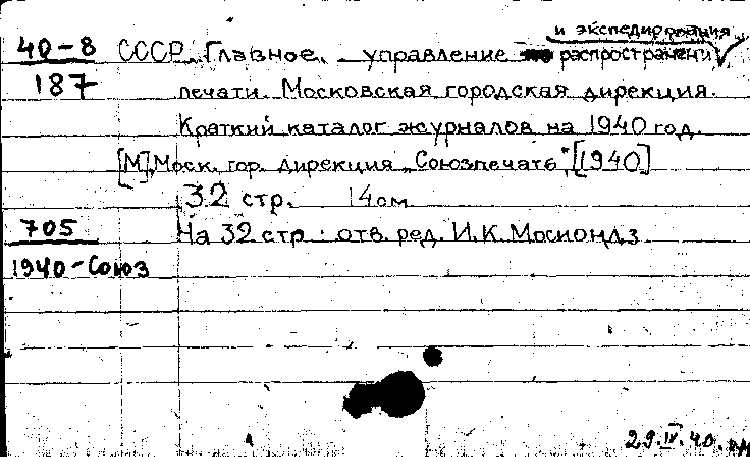 и экспедирования
40-8 СССР. Главное управление распространени
187 печати. Московская городская дирекция.
Краткий каталог журналов на 1940 год.
[М], Моск. гор. дирекция „Союзпечать", [1940]
32 стр. 14 см
705 На 32 стр.: отв. ред. И.К. Мосиондз
1940-Союз
29.IV.40.